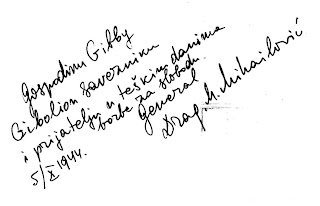 Gospodinu Gibby
Gibolion saverniku
i prijatelju u teškim danima
borbe za slobodu.
5/X 1944. General
Drag. M. Mihailović